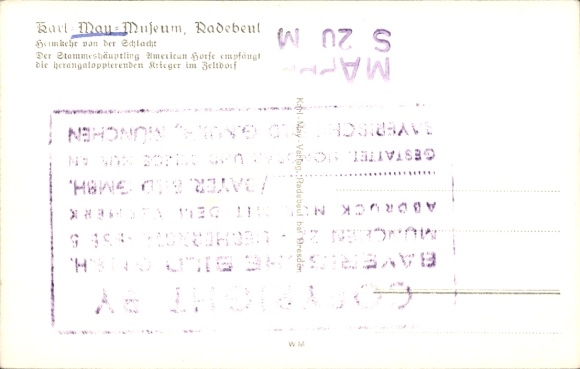 Karl-May-Museum, Radebeul
Heimkehr von der Schlacht
Der Stammeshäuptling American Horse empfängt
die herangaloppierenden Krieger im Zeltdorf
S 20 M
Karl-May-Verlag, Radebeul bei Dresden
COPYRIGHT BY
BAYERISCHE BILD GMBH.
MÜNCHEN 2
ABDRUCK NUR MIT DEM VERMERK
BAYER. BILD GMBH.
GESTATTET HONORAR UND BELEGE NUR AN
BAYERISCHE BILD GMBH, MÜNCHEN
W.M.